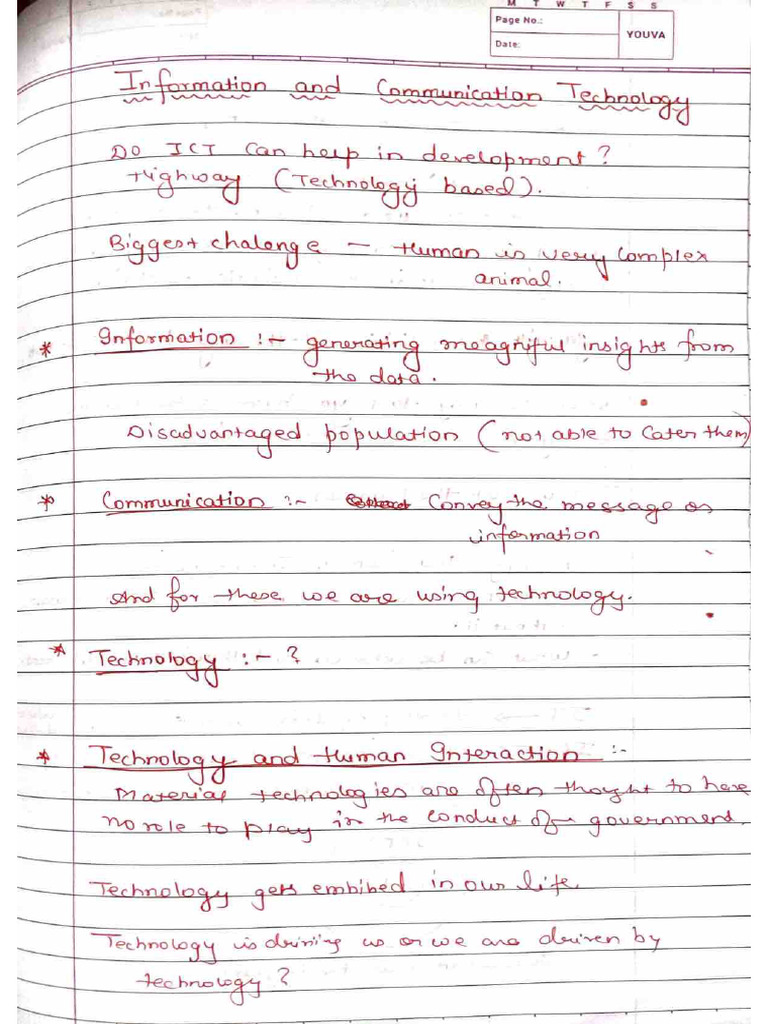 M T W T F S S
Page No.:
YOUVA
Date:
Information and Communication Technology
Do ICT can help in development?
Highway (Technology based).
Biggest chalenge – Human is very complex
animal.
* Information :- generating meagniful insights from
the data.
Disadvantaged population (not able to cater them)
* Communication :- Convey the message or
information
And for these we are using technology.
* Technology :- ?
* Technology and Human Interaction :-
Material technologies are often thought to have
no role to play in the conduct of government.
Technology gets embibed in our life.
Technology is driving us or we are driven by
technology?